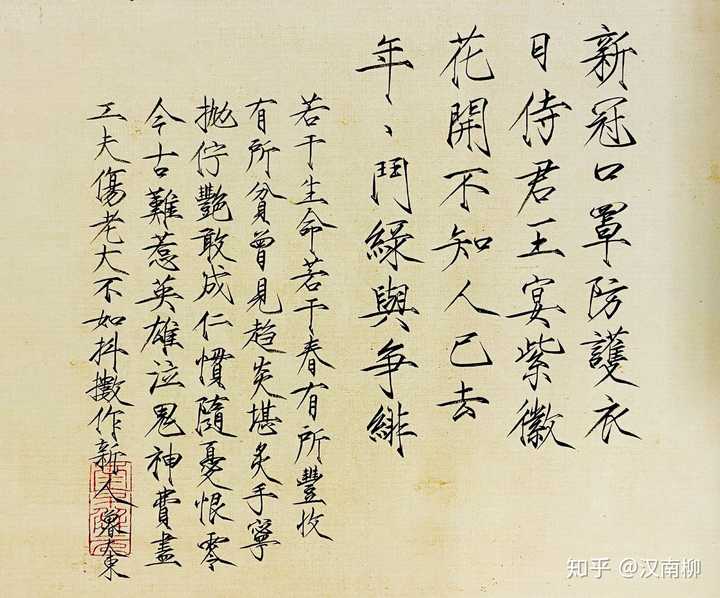 新冠口罩防護衣
日侍君王宴紫徽
花開不知人已去
年、、鬥綠與爭緋
若干生命若干春有所豐收
有所貧曾見趨炎堪炙手寧
拋佇艷敢成仁慣隨憂恨零
今古難惹英雄泣鬼神費盡
工夫傷老大不如抖擻作新人
知乎 @汉南柳